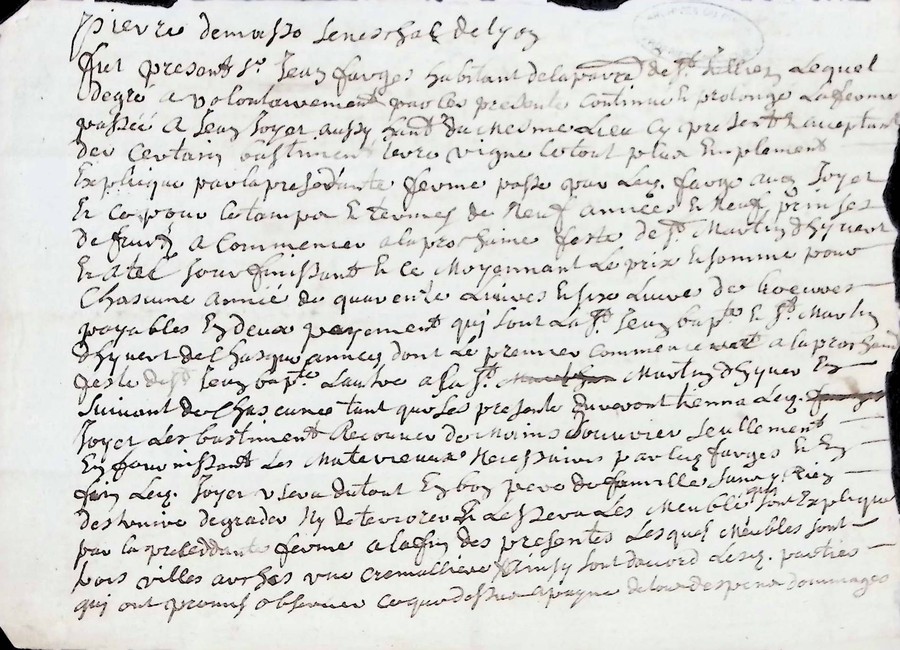 pierre demasso seneschal de lyon
fut present sr Jean farges habitant dela parre de st Lequel
degré a volontairement par les presente continue et prolonge La ferme
passée A Jean Joyer aussy habnt du mesme Lieu cy present & acceptant
des certain bastiment terre vigne le tout plux emplement
Expliqué par la presedante ferme passe par Led. farge aud Joyer
Et ce pour le tamps et termes de Neuf années et Neuf prinses
de fruit a commencer a la prochaine feste de st Martin d'hyvert
Et A tel jour finissant et ce Moyennant Le prix et somme pour
Chascune année de quarente Livres et six Livre de
payables En deux payement qui sont La st Jean bapte et st Martin
d'hyvert de Chasque année dont Le premier commencera a la prochaine
feste de st Jean bapte Lautre a la st Martin d'hyver En
suivant de Chascune tant que Les presente dureront tiendra Led.
Joyer Les bastiment Recouver de Mains douvrier seullement
En fournissant Les Materreaux Necessaires par led farges et En
fin Led. Joyer usera du tout En bon pere de famille sans y Rien
destruire degrader Ny deteriorer Et Lessera Les Meuble qui sont Expliqué
par la presedante ferme a la fin des presentes Lesquel Meubles sont
arches une cremalliere Ainsy sont daccord Lesd. parties
qui ont promis observer ce que dessus a payne de tous despens dommages